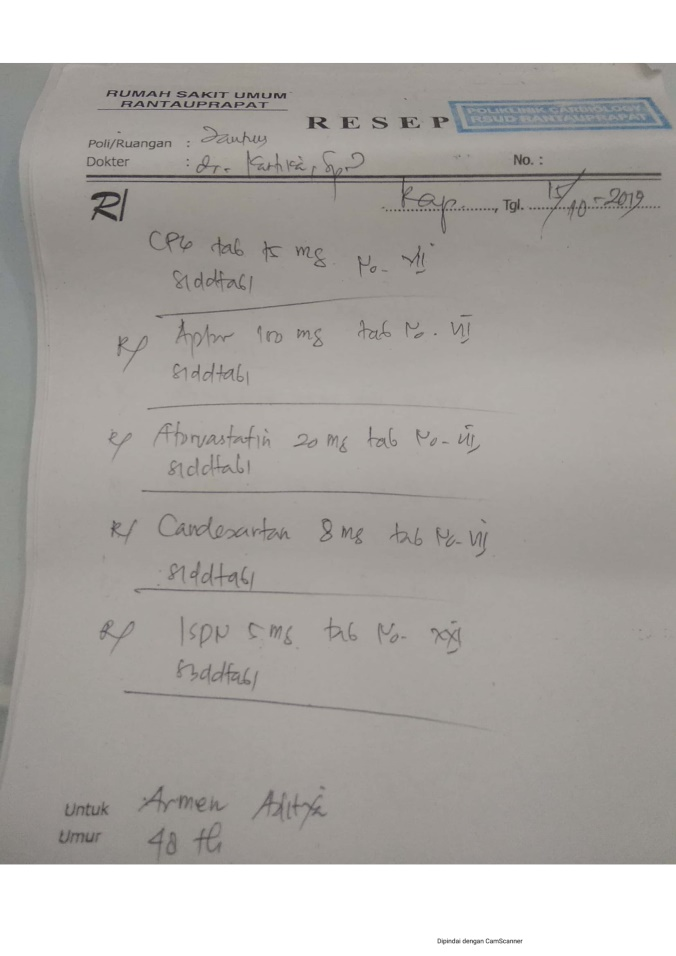 RUMAH SAKIT UMUM
RANTAUPRAPAT
RESEP
POLIKLINIK CARDIOLOGY
RSUD RANTAUPRAPAT
Poli/Ruangan : Jantung
Dokter : dr. Kartika, Sp.
No. :
Rap, Tgl. 15/10-2019
R/
CPG tab 75 mg No. VII
S1ddtab1
R/ Aptor 100 mg tab No. VII
S1ddtab1
R/ Atorvastatin 20 mg tab No. VII
S1ddtab1
R/ Candesartan 8 mg tab No. VII
S1ddtab1
R/ ISDN 5 mg tab No. XXI
S3ddtab1
Untuk Armen Aditya
Umur 48 th
Dipindai dengan CamScanner